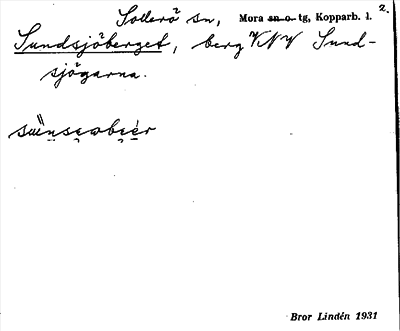 Sollerö sn, Mora sn o. tg, Kopparb. l. 2.
Sundsjöberget, berg VNV Sund-
sjögarna.
Bror Lindén 1931